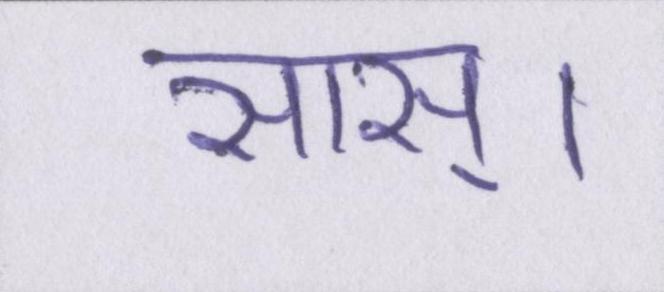 सास्।